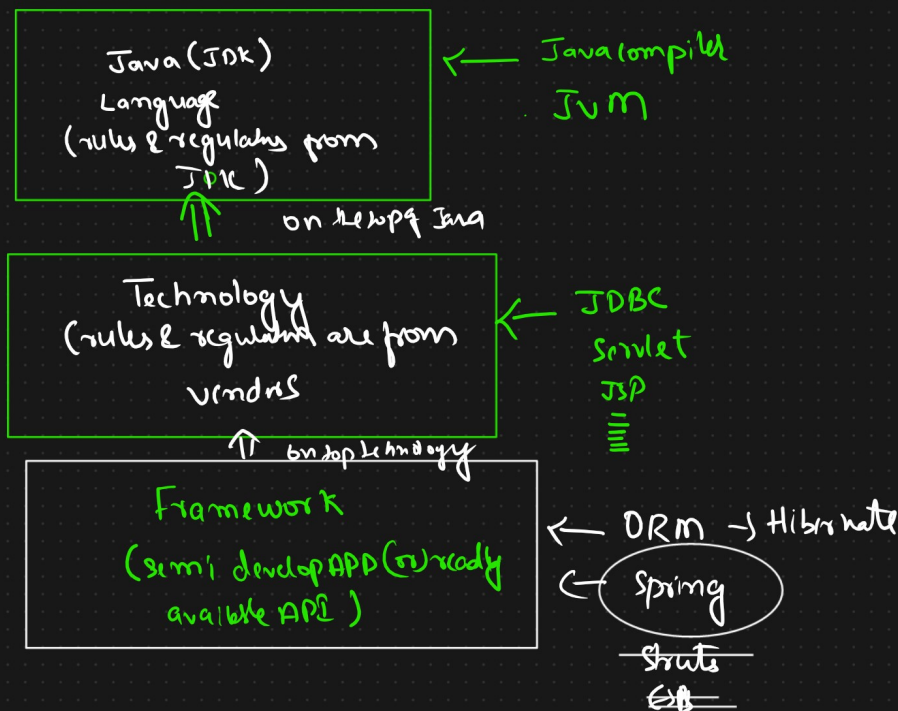 Java (JDK)
Language
(rules & regulatns from
JDK)
Java compiler
JVM
on the top of Java
Technology
(rules & regulatns are from
vendrs
JDBC
Servlet
JSP
on top tehnology
Framework
(semi develop APP (or) ready
available API)
ORM → Hibernate
Spring
Struts